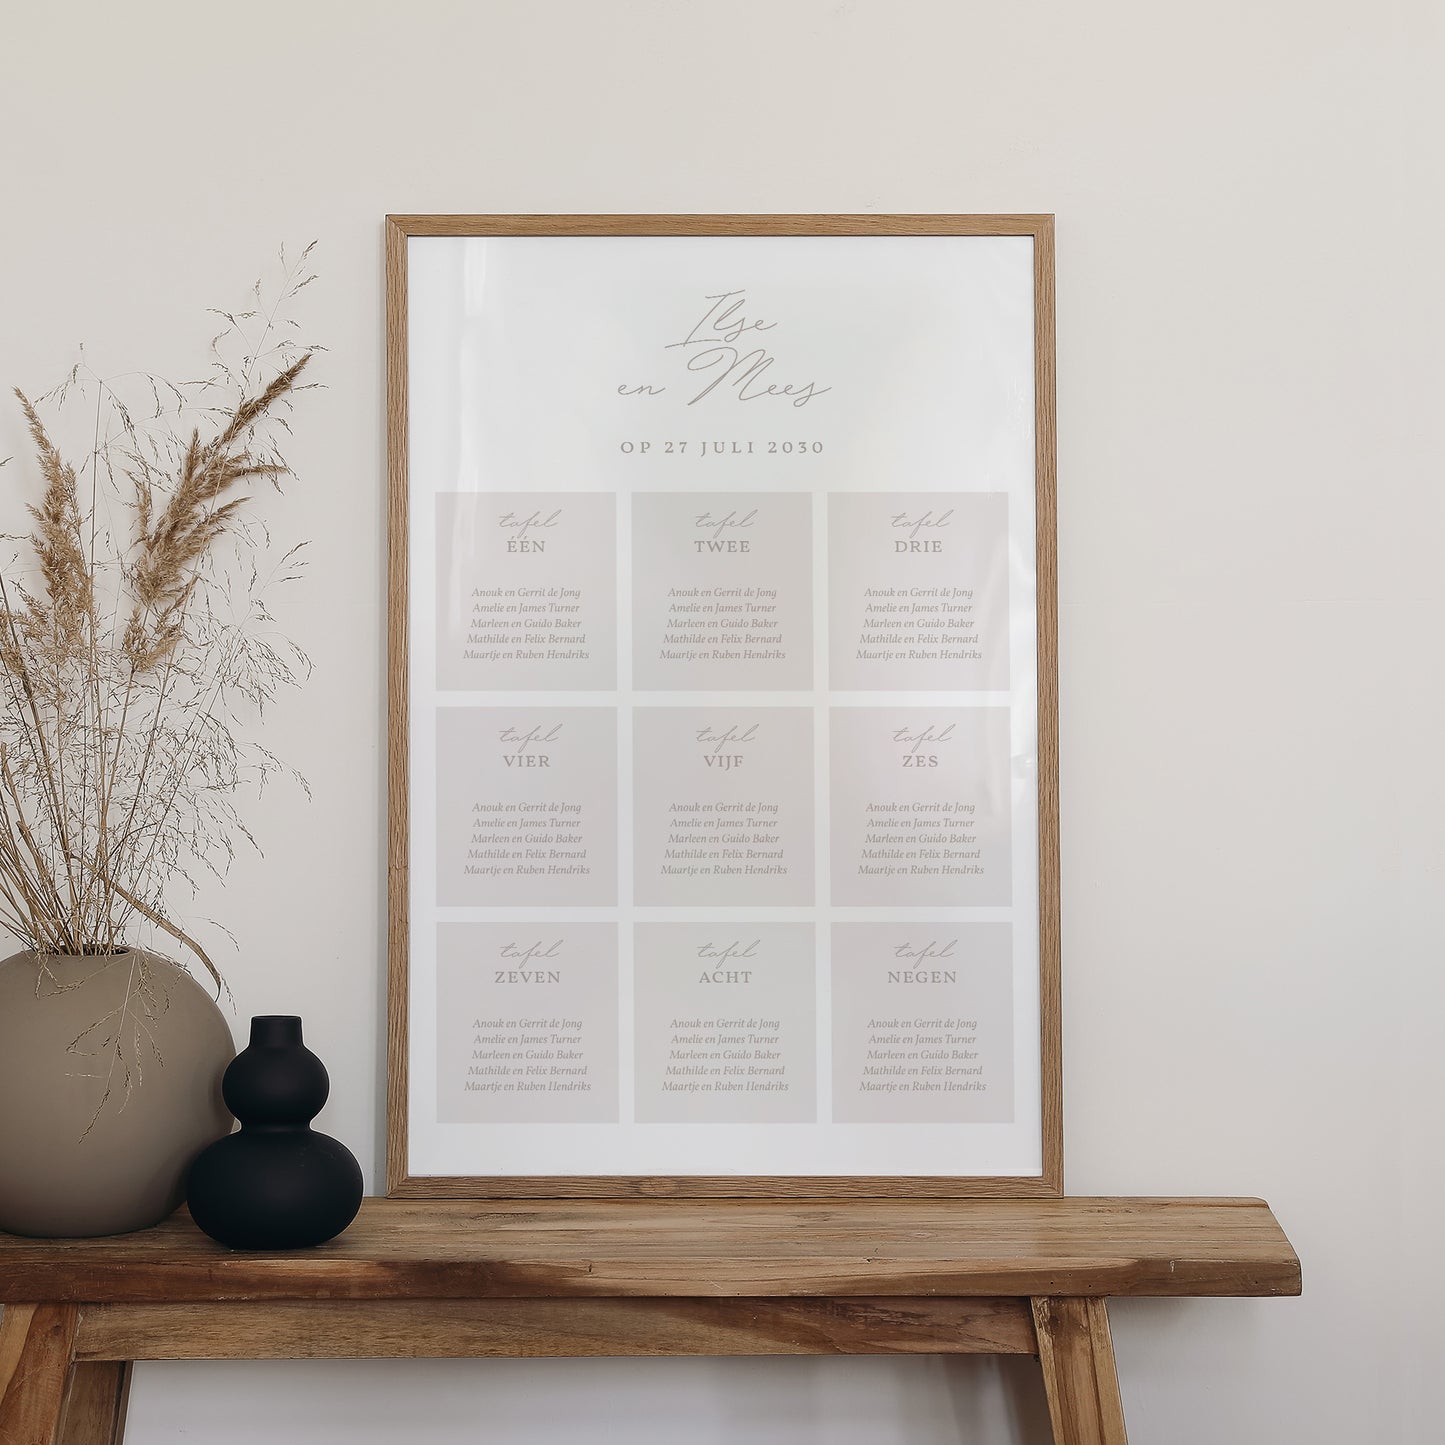 Ilse
en Mees
OP 27 JULI 2030
tafel
ÉÉN
Anouk en Gerrit de Jong
Amelie en James Turner
Marleen en Guido Baker
Mathilde en Felix Bernard
Maartje en Ruben Hendriks
tafel
TWEE
Anouk en Gerrit de Jong
Amelie en James Turner
Marleen en Guido Baker
Mathilde en Felix Bernard
Maartje en Ruben Hendriks
tafel
DRIE
Anouk en Gerrit de Jong
Amelie en James Turner
Marleen en Guido Baker
Mathilde en Felix Bernard
Maartje en Ruben Hendriks
tafel
VIER
Anouk en Gerrit de Jong
Amelie en James Turner
Marleen en Guido Baker
Mathilde en Felix Bernard
Maartje en Ruben Hendriks
tafel
VIJF
Anouk en Gerrit de Jong
Amelie en James Turner
Marleen en Guido Baker
Mathilde en Felix Bernard
Maartje en Ruben Hendriks
tafel
ZES
Anouk en Gerrit de Jong
Amelie en James Turner
Marleen en Guido Baker
Mathilde en Felix Bernard
Maartje en Ruben Hendriks
tafel
ZEVEN
Anouk en Gerrit de Jong
Amelie en James Turner
Marleen en Guido Baker
Mathilde en Felix Bernard
Maartje en Ruben Hendriks
tafel
ACHT
Anouk en Gerrit de Jong
Amelie en James Turner
Marleen en Guido Baker
Mathilde en Felix Bernard
Maartje en Ruben Hendriks
tafel
NEGEN
Anouk en Gerrit de Jong
Amelie en James Turner
Marleen en Guido Baker
Mathilde en Felix Bernard
Maartje en Ruben Hendriks